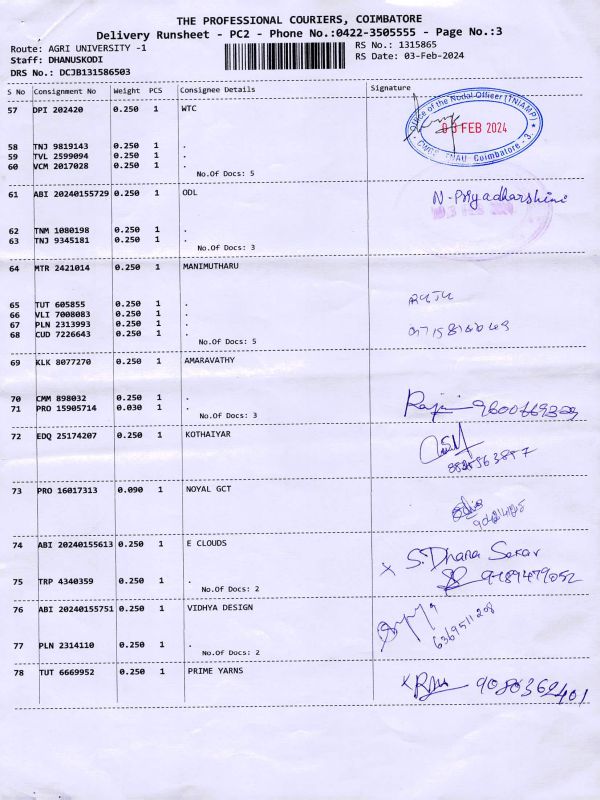 THE PROFESSIONAL COURIERS, COIMBATORE
Delivery Runsheet - PC2 - Phone No.:0422-3505555 - Page No.:3
Route: AGRI UNIVERSITY -1
RS No.: 1315865
Staff: DHANUSKODI
RS Date: 03-Feb-2024
DRS No.: DCJB131586503
S No Consignment No Weight PCS Consignee Details Signature
57 DPI 202420 0.250 1 WTC
Office of the Nodal Officer (TNIAMP)
03 FEB 2024
TNAU Coimbatore - 3.
58 TNJ 9819143 0.250 1 .
59 TVL 2599094 0.250 1 .
60 VCM 2017028 0.250 1 .
No.Of Docs: 5
61 ABI 20240155729 0.250 1 ODL
N. Priyadharshini
62 TNM 1080198 0.250 1 .
63 TNJ 9345181 0.250 1 .
No.Of Docs: 3
64 MTR 2421014 0.250 1 MANIMUTHARU
65 TUT 605855 0.250 1 .
66 VLI 7008083 0.250 1 .
67 PLN 2313993 0.250 1 .
68 CUD 7226643 0.250 1 .
No.Of Docs: 5
69 KLK 8077270 0.250 1 AMARAVATHY
70 CMM 898032 0.250 1 .
71 PRO 15905714 0.030 1 .
No.Of Docs: 3
72 EDQ 25174207 0.250 1 KOTHAIYAR
73 PRO 16017313 0.090 1 NOYAL GCT
74 ABI 20240155613 0.250 1 E CLOUDS
x S. Dhana Sekar
75 TRP 4340359 0.250 1 .
9789479052
No.Of Docs: 2
76 ABI 20240155751 0.250 1 VIDHYA DESIGN
6369511208
77 PLN 2314110 0.250 1 .
No.Of Docs: 2
78 TUT 6669952 0.250 1 PRIME YARNS
x 9080362401